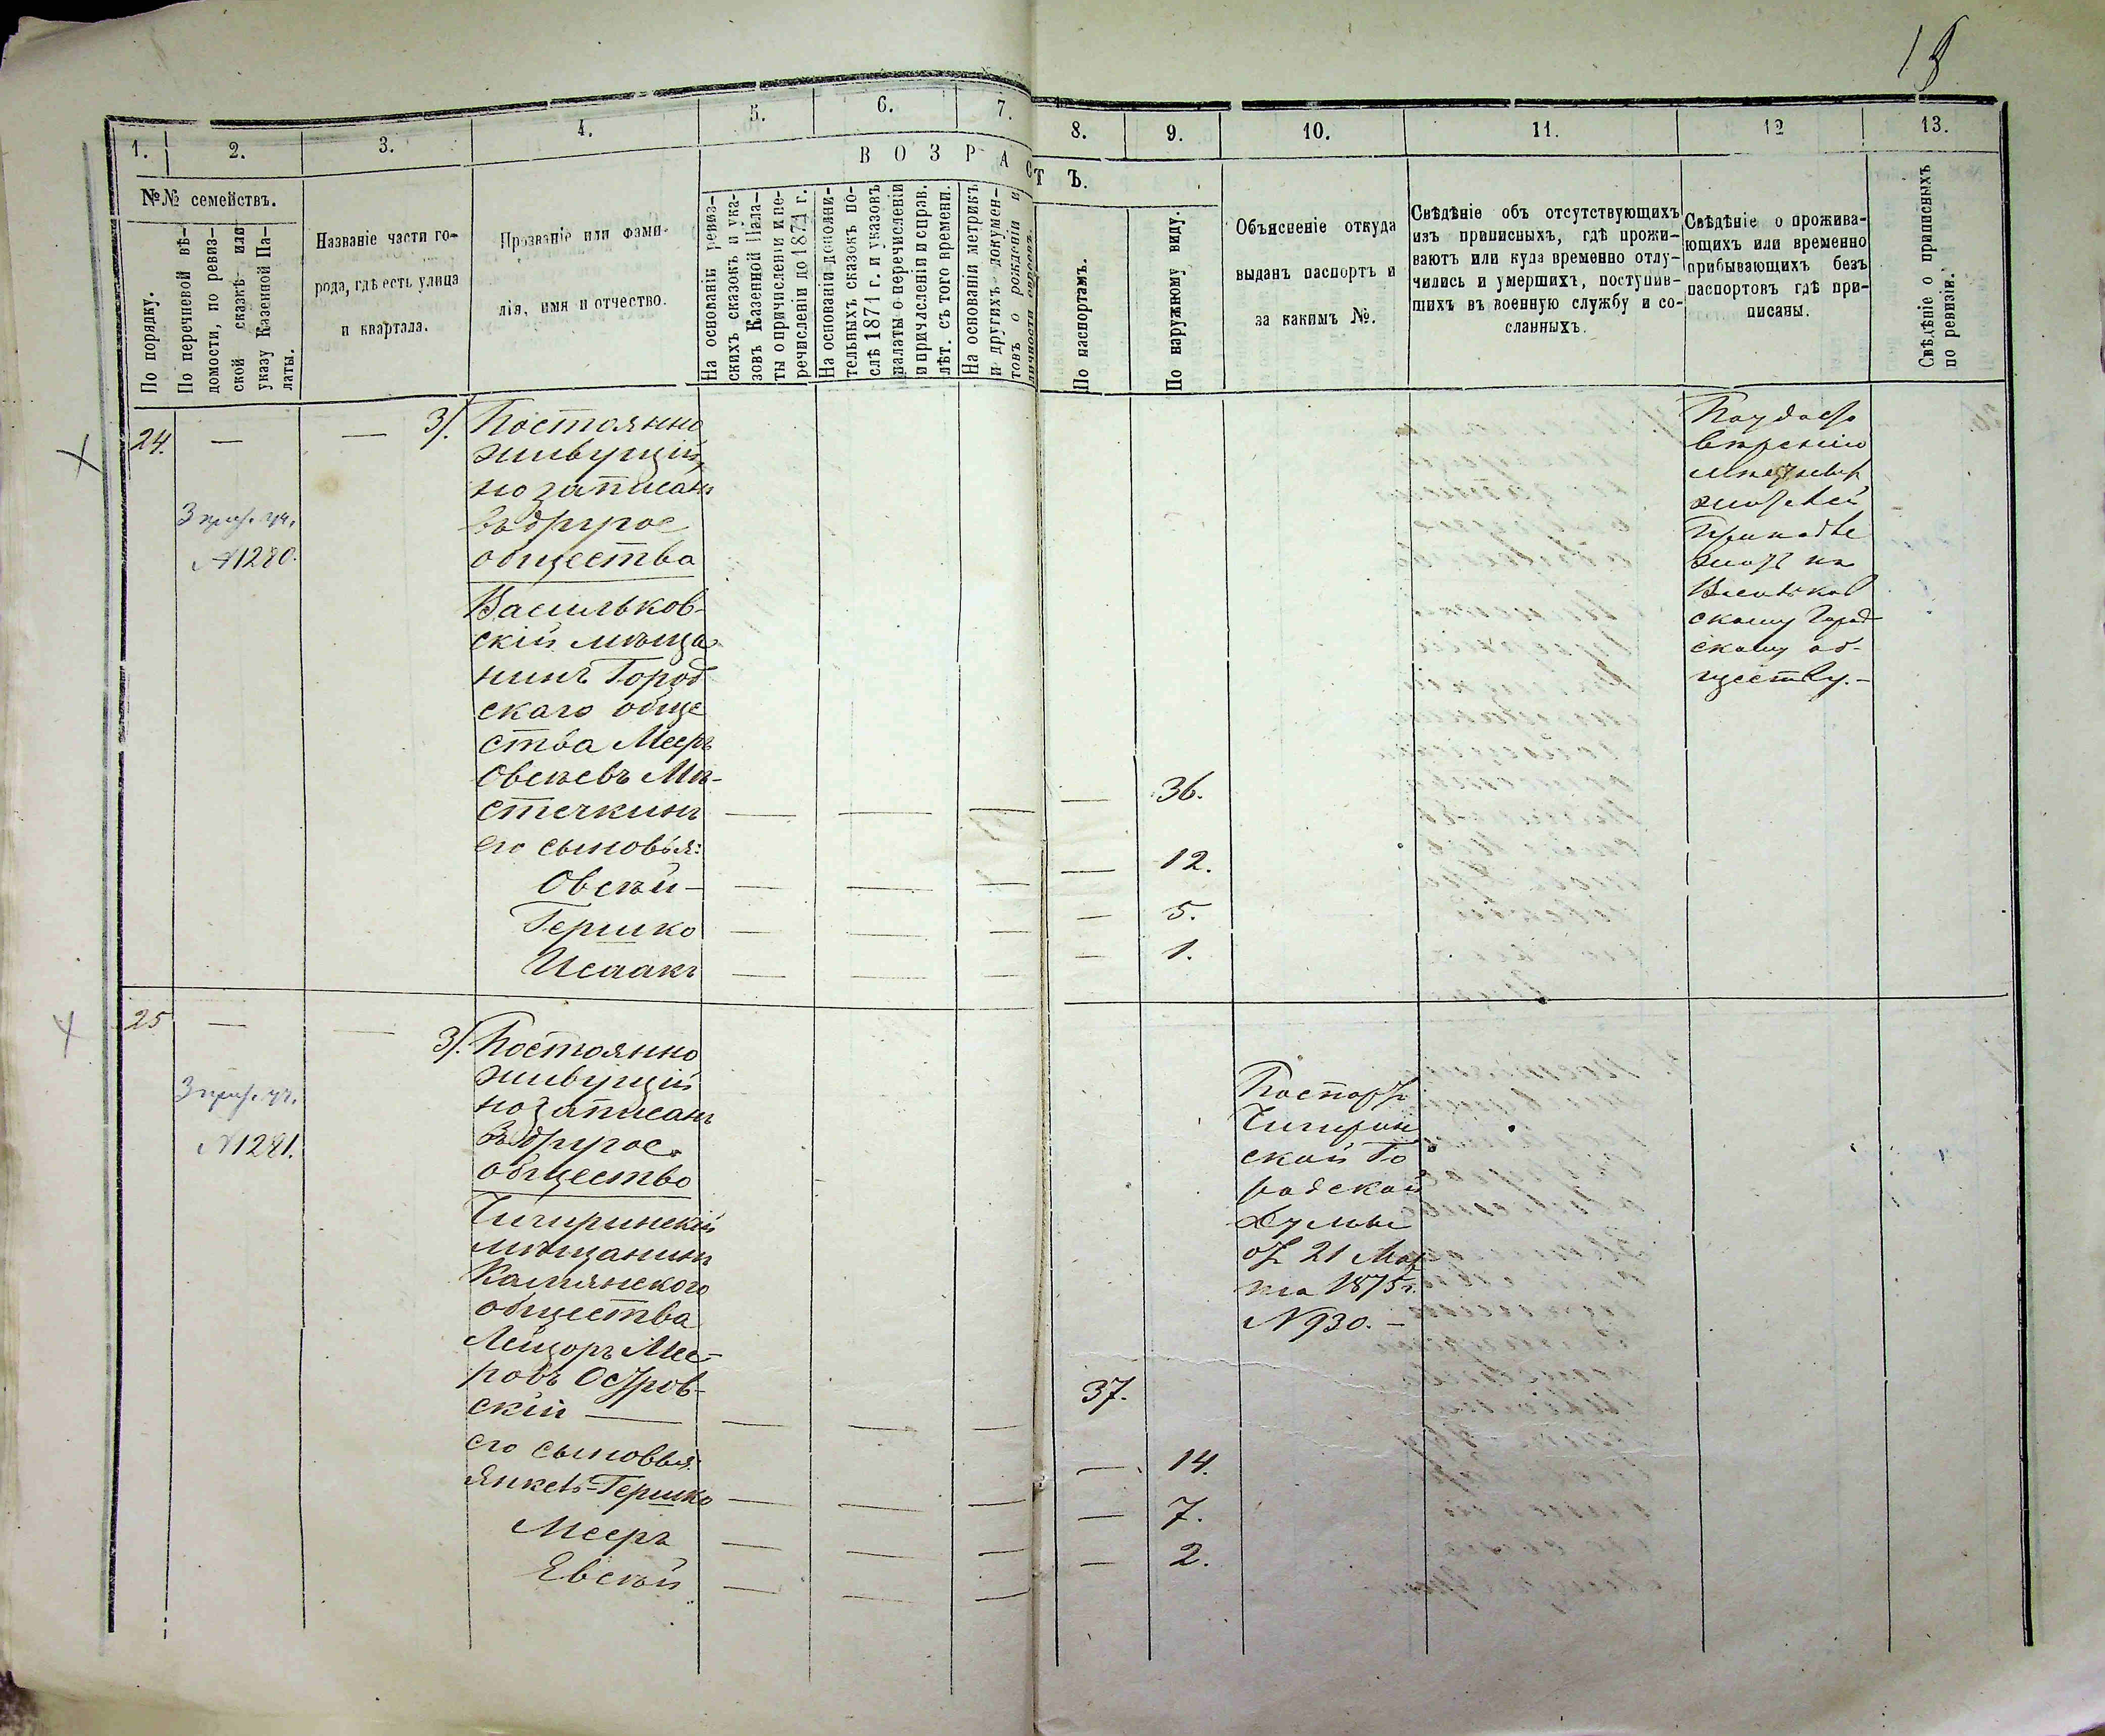 18
1.
2.
3.
4.
5.
6.
7.
8.
9.
10.
11.
12
13.
ВОЗРАСТЪ.
№№ семействъ.
По порядку.
По перечневой вѣ-
домости, по ревиз-
ской сказкѣ или
указу Казенной Па-
латы.
Названіе части го-
рода, гдѣ есть улица
и квартала.
Прозваніе или фами-
лія, имя и отчество.
На основаніи ревиз-
скихъ сказокъ и ука-
зовъ Казенной Пала-
ты о причисленіи и пе-
речисленіи до 1874 г.
На основаніи дополни-
тельныхъ сказокъ по-
слѣ 1871 г. и указовъ
палаты о перечисленіи
и причисленіи и справ.
лѣт. съ того времени.
На основаніи метрикъ
и другихъ докумен-
товъ о рожденіи и
личности евреевъ.
По паспортамъ.
По наружному виду.
Объясненіе откуда
выданъ паспортъ и
за какимъ №.
Свѣдѣніе объ отсутствующихъ
изъ приписныхъ, гдѣ прожи-
ваютъ или куда временно отлу-
чились и умершихъ, поступив-
шихъ въ военную службу и со-
сланныхъ.
Свѣдѣніе о прожива-
ющихъ или временно
прибывающихъ безъ
паспортовъ гдѣ при-
писаны.
Свѣдѣніе о приписныхъ
по ревизіи.
24.
№ 1280.
3). Постоянно
живущій,
но записанъ
въ другое
общества
Васильков-
скій мѣща
нинъ Город
скаго обще
ства Мееръ
Овсѣевъ Мѣ-
стечкинъ
36.
его сыновья:
Овсѣй -
12.
Гершко
5.
Исаакъ
1.
скому Город
скому об-
ществу. -
25
№ 1281.
3). Постоянно
живущій
но записанъ
въ другое
общество
Чигиринскій
мѣщанинъ
Камянского
общества
Лейзоръ Мее-
ровъ Остров-
скій
37.
его сыновья:
Янкель-Гершко
14.
Мееръ
7.
Евсѣй
2.
Паспортъ
Чигирин
ской Го
родской
Думы
отъ 21 Мар
та 1875 г.
№ 930. -